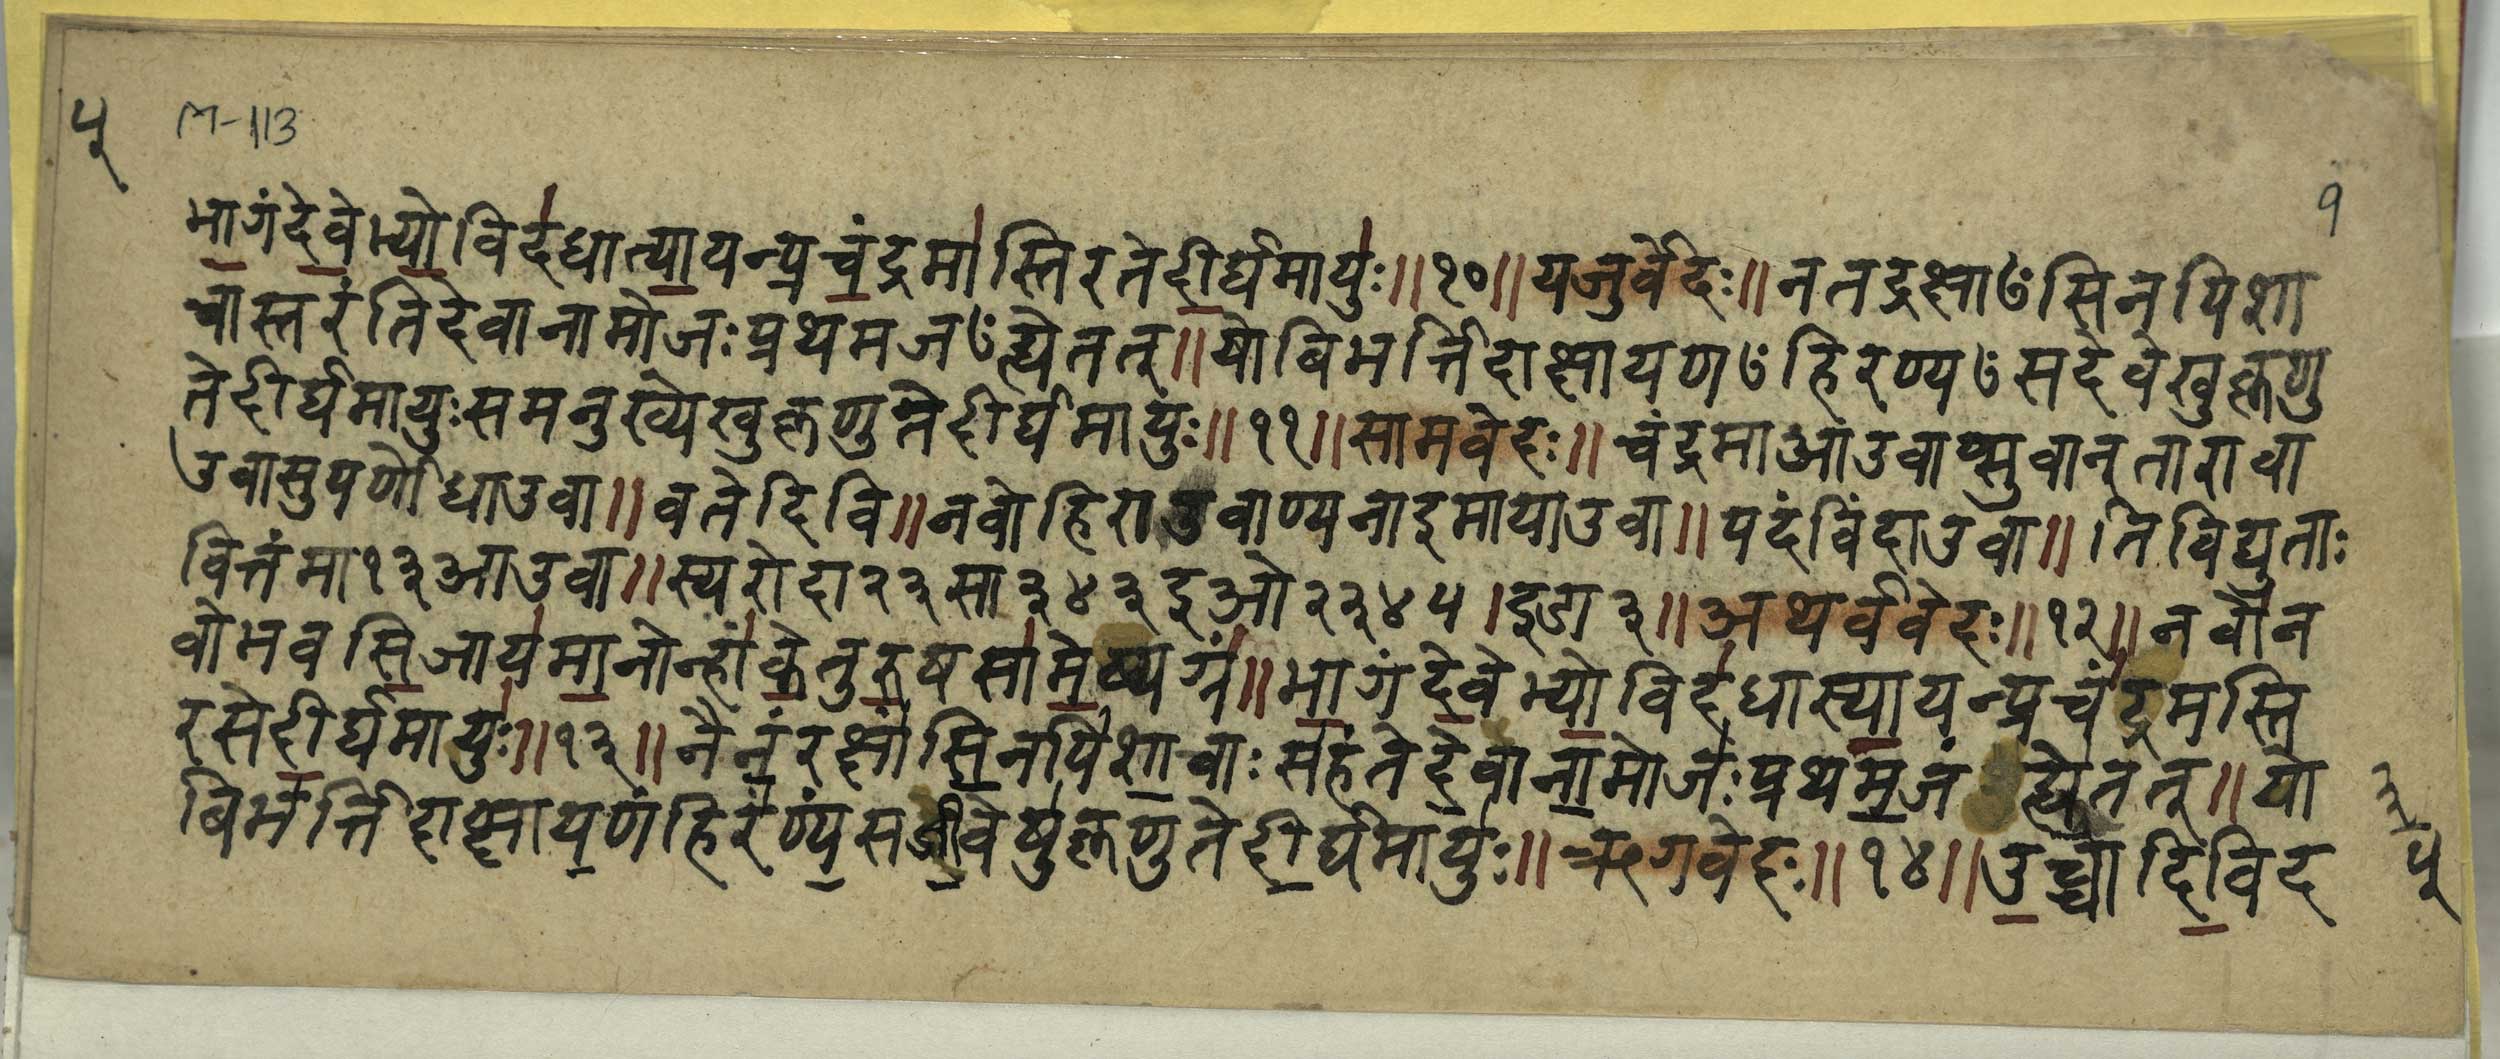 ५ M-113
१
भागंदेवेभ्योविदधात्यायन्प्रचंद्रमास्तिरतेदीर्घमायुः॥१०॥यजुर्वेदः॥नतद्रक्षाꣳसिनपिशा
चास्तरंतिदेवानामोजःप्रथमजꣳह्येतत्॥योबिभर्त्तिदाक्षायणꣳहिरण्यꣳसदेवेखुकृणु
तेदीर्घमायुःसमनुख्येखुकृणुतेदीर्घमायुः॥११॥सामवेदः॥चंद्रमाआउवाप्सुवान्तारावा
उवासुपर्णोधाउवा॥वतेदिवि॥नवोहिराउवाण्यनाइमायाउवा॥पदंविंदाउवा॥तिविद्युताः
वित्तंमा१३आउवा॥स्यरोदा२३सा३४३इओ२३४५।इडा३॥अथर्ववेदः॥१२॥नवोन
वोभवसिजायमानोन्हांकेतुरुषसामेष्यग्रं॥भागंदेवेभ्योविदधास्यायन्प्रचंद्रमस्ति
रसेदीर्घमायुः॥१३॥नैनंरक्षांसिनपिशाचाःसहंतेदेवानामोजःप्रथमजंह्येतत्॥यो
बिभर्त्तिदाक्षायणंहिरण्यंसजीवेषुकृणुतेदीर्घमायुः॥ऋगवेदः॥१४॥उच्चादिविद
३
५